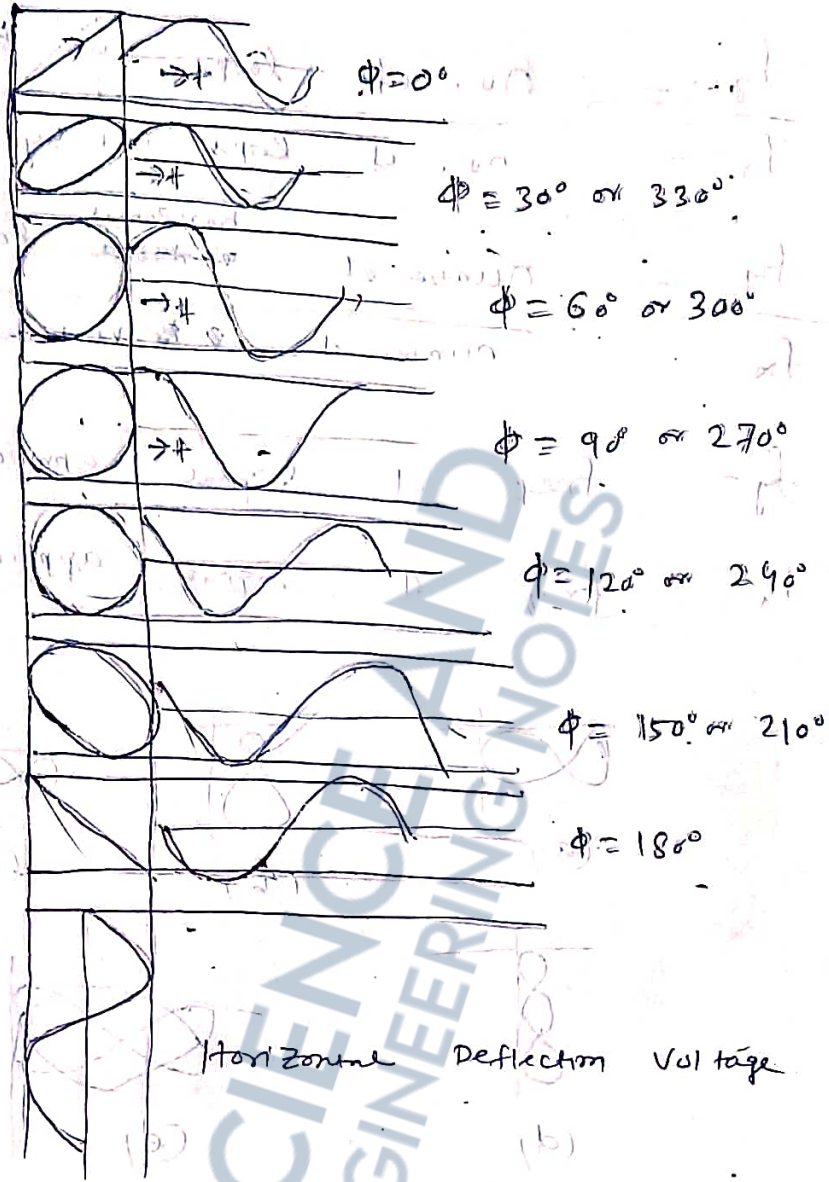 →t ϕ = 0°
→t ϕ = 30° or 330°
→t ϕ = 60° or 300°
→t ϕ = 90° or 270°
ϕ = 120° or 240°
ϕ = 150° or 210°
ϕ = 180°
Horizontal Deflection Voltage
SCIENCE AND
ENGINEERING NOTES